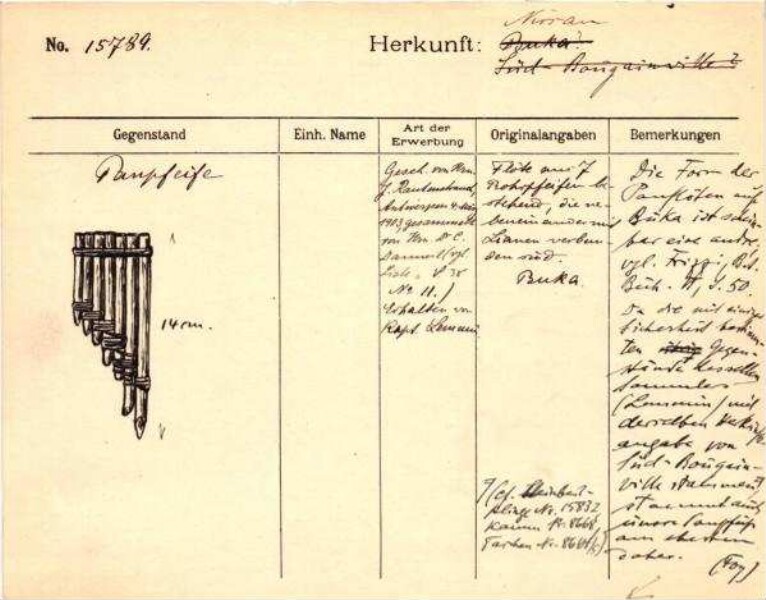 No. 15789.
Herkunft:
Nissan
Buka?
Süd-Bougainville?
Gegenstand
Einh. Name
Art der Erwerbung
Originalangaben
Bemerkungen
Panpfeife
14 cm.
Gesch. von Hrn.
J. Rautenstrauch,
Antwerpen 4. März
1913, gesammelt
von Hrn. Dr C.
(vgl.
No 11.)
Erhalten von
Kapt.
Flöte aus 7
Rohrpfeifen be-
stehend, die ne-
beneinander mit
Lianen verbun-
den sind.
Buka.
(cf.
No. 15832
Kämme Nr. 8668,
Taschen Nr.
Die Form der
Panflöten auf
Buka ist schein-
bar eine andre,
vgl. Frizzi,
S. 50.
Da die mit einiger
Sicherheit bestimm-
ten Gegen-
stände desselben
Sammlers
mit
derselben
angabe von
Süd-Bougain-
ville stammen,
stammt auch
unsere Panpfeife
am ehesten
daher.
(Foy)